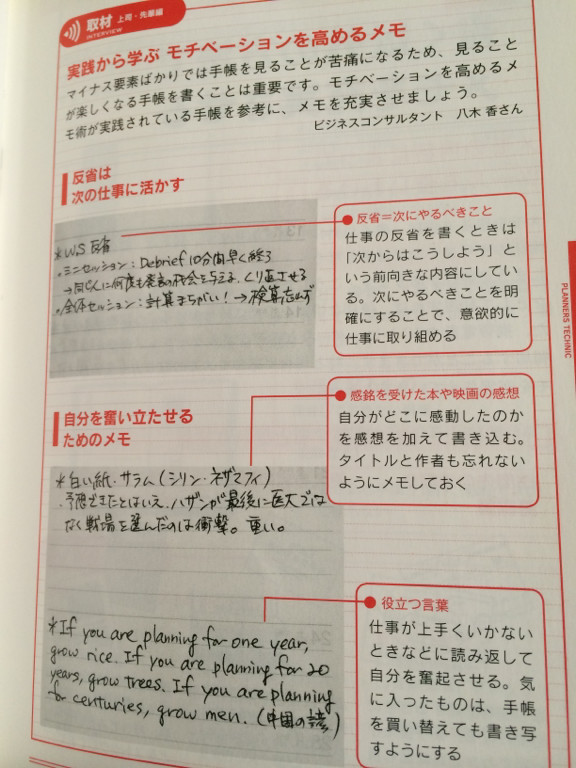 取材 上司・先輩編
INTERVIEW
実践から学ぶ モチベーションを高めるメモ
マイナス要素ばかりでは手帳を見ることが苦痛になるため、見ること
が楽しくなる手帳を書くことは重要です。モチベーションを高めるメ
モ術が実践されている手帳を参考に、メモを充実させましょう。
ビジネスコンサルタント 八木 香さん
反省は
次の仕事に活かす
*WS 反省
・ミニセッション：Debrief 10分間早く終る
→同じ人に何度も発言の機会を与える、くり返させる
・全体セッション：計算まちがい！→検算忘れず
反省＝次にやるべきこと
仕事の反省を書くときは
「次からはこうしよう」と
いう前向きな内容にしてい
る。次にやるべきことを明
確にすることで、意欲的に
仕事に取り組める
PLANNERS TECHNIC
自分を奮い立たせる
ためのメモ
*白い紙・サラム（シリン・ネザマフィ）
・予想できたとはいえ、ハザンが最後に医大では
なく戦場を選んだのは衝撃。重い。
感銘を受けた本や映画の感想
自分がどこに感動したのか
を感想を加えて書き込む。
タイトルと作者も忘れない
ようにメモしておく
*If you are planning for one year,
grow rice. If you are planning for 20
years, grow trees. If you are planning
for centuries, grow men. (中国の諺)
役立つ言葉
仕事が上手くいかない
ときなどに読み返して
自分を奮起させる。気
に入ったものは、手帳
を買い替えても書き写
すようにする